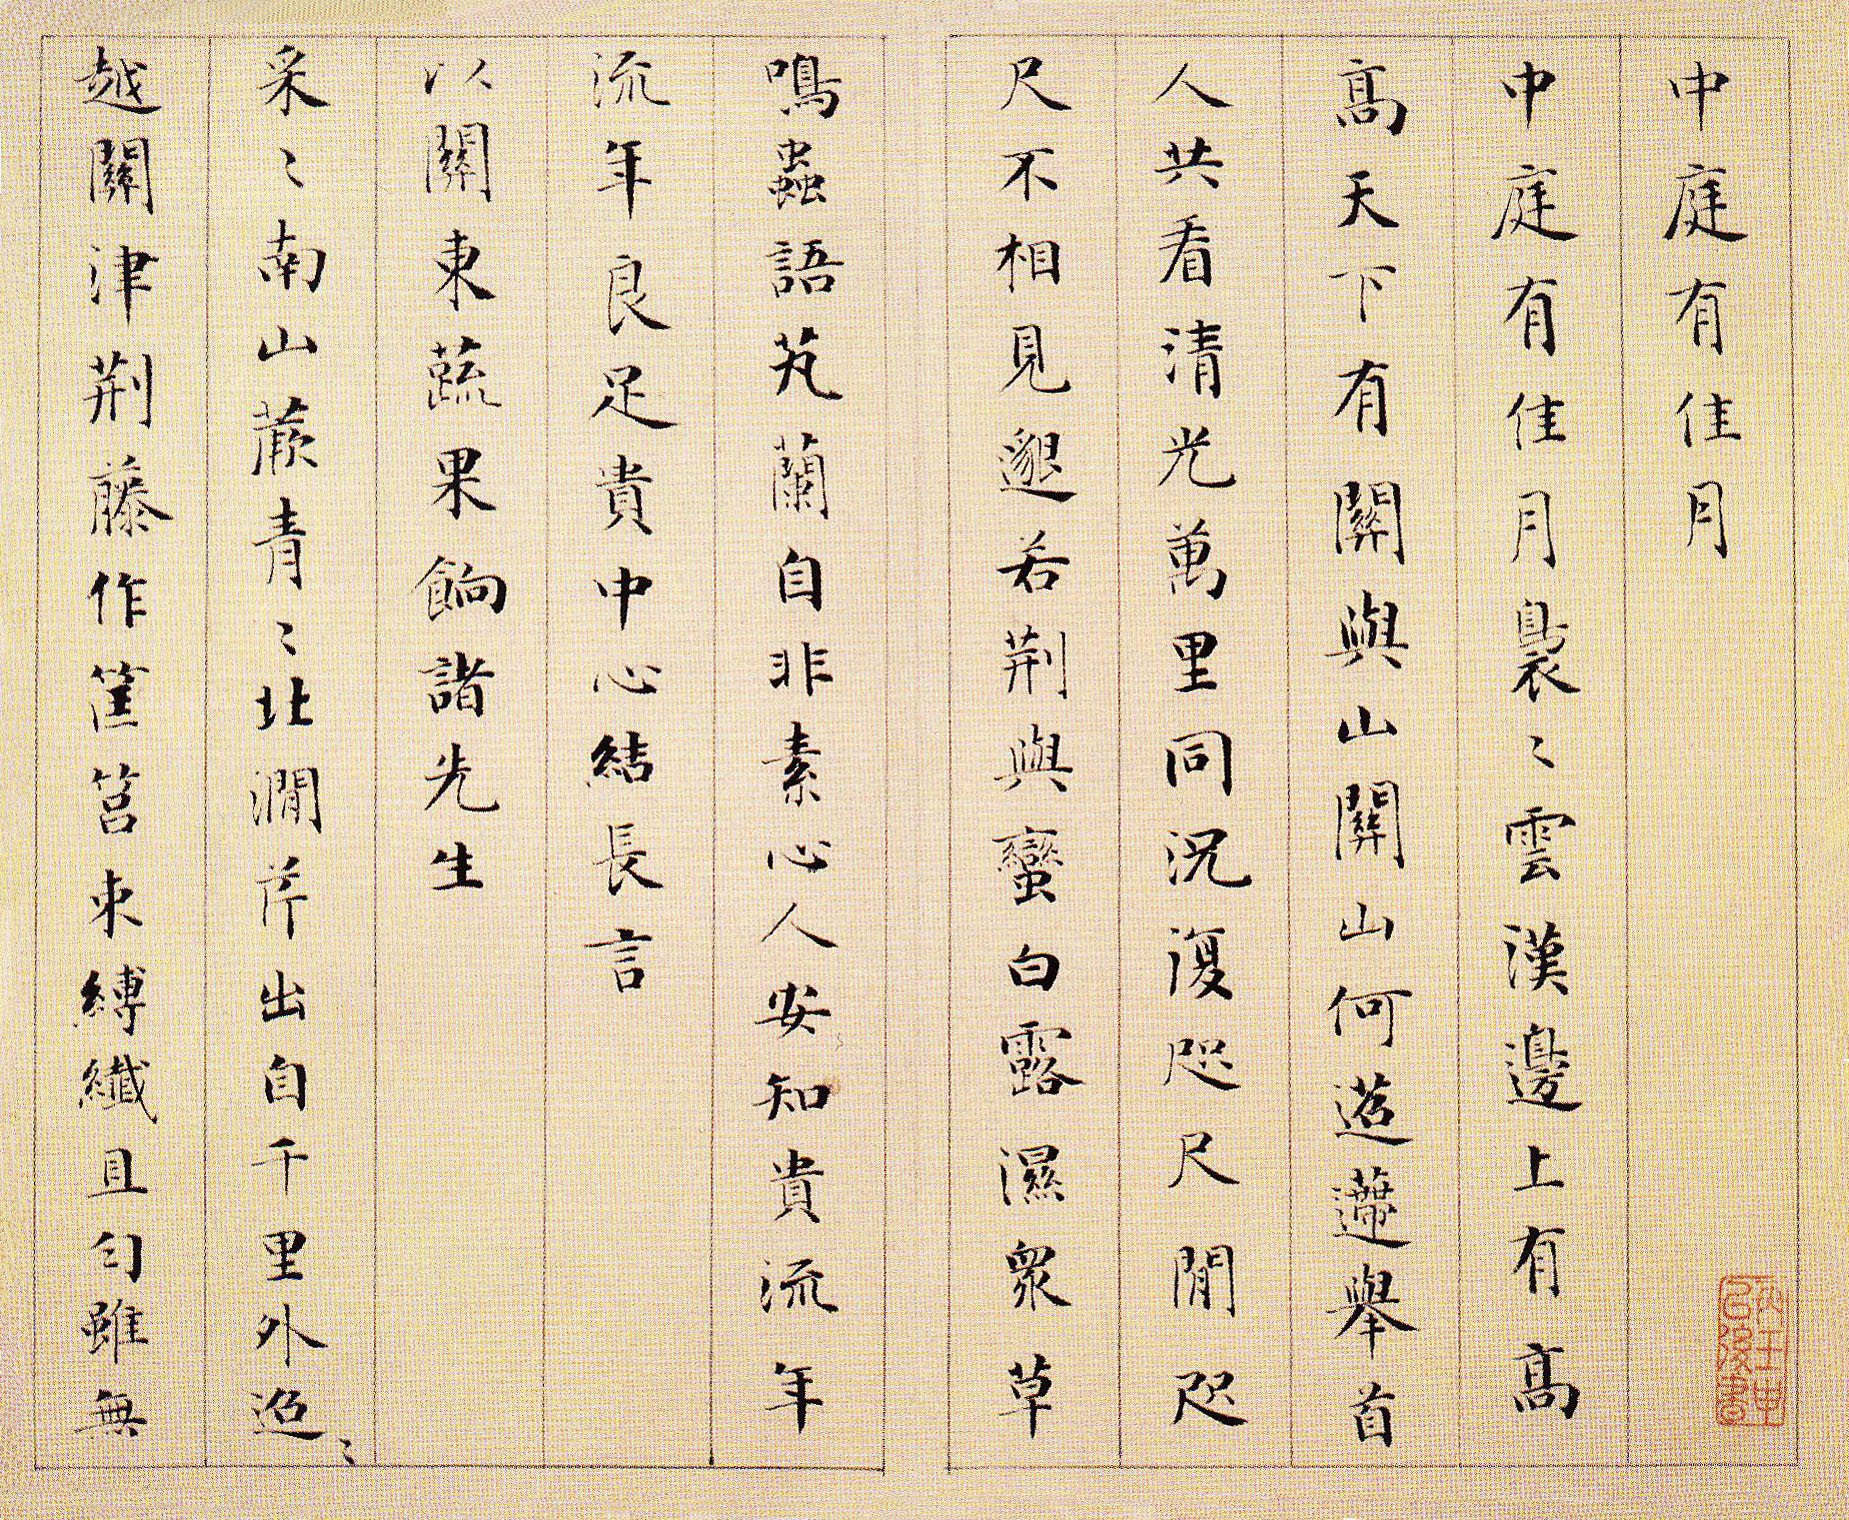 中庭有佳月
中庭有佳月裊〻雲漢邊上有高
高天下有關與山關山何迢遰舉首
人共看清光萬里同況復咫尺間咫
尺不相見邈若荆與蠻白露濕衆草
鳴蟲語芄蘭自非素心人安知貴流年
流年良足貴中心結長言
以關東蔬果餉諸先生
采〻南山蕨青〻北澗芹出自千里外迢〻
越關津荆藤作筐筥束縛纖且匀雖無